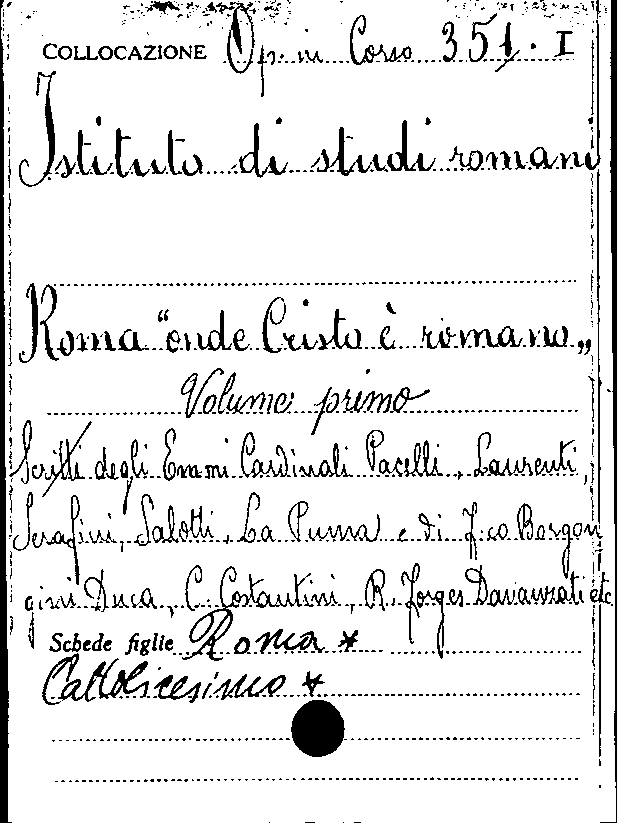 COLLOCAZIONE Op. in Corso 351. I
Istituto di studi romani
Roma "onde Cristo è romano„
Volume primo
Scritti degli Emmi Cardinali Pacelli, Laurenti,
Serafini, Salotti, La Puma e di F.co Borgon
gini Duca, C. Costantini, R. Forges Davanzati etc
Schede figlie Roma *
Cattolicesimo *